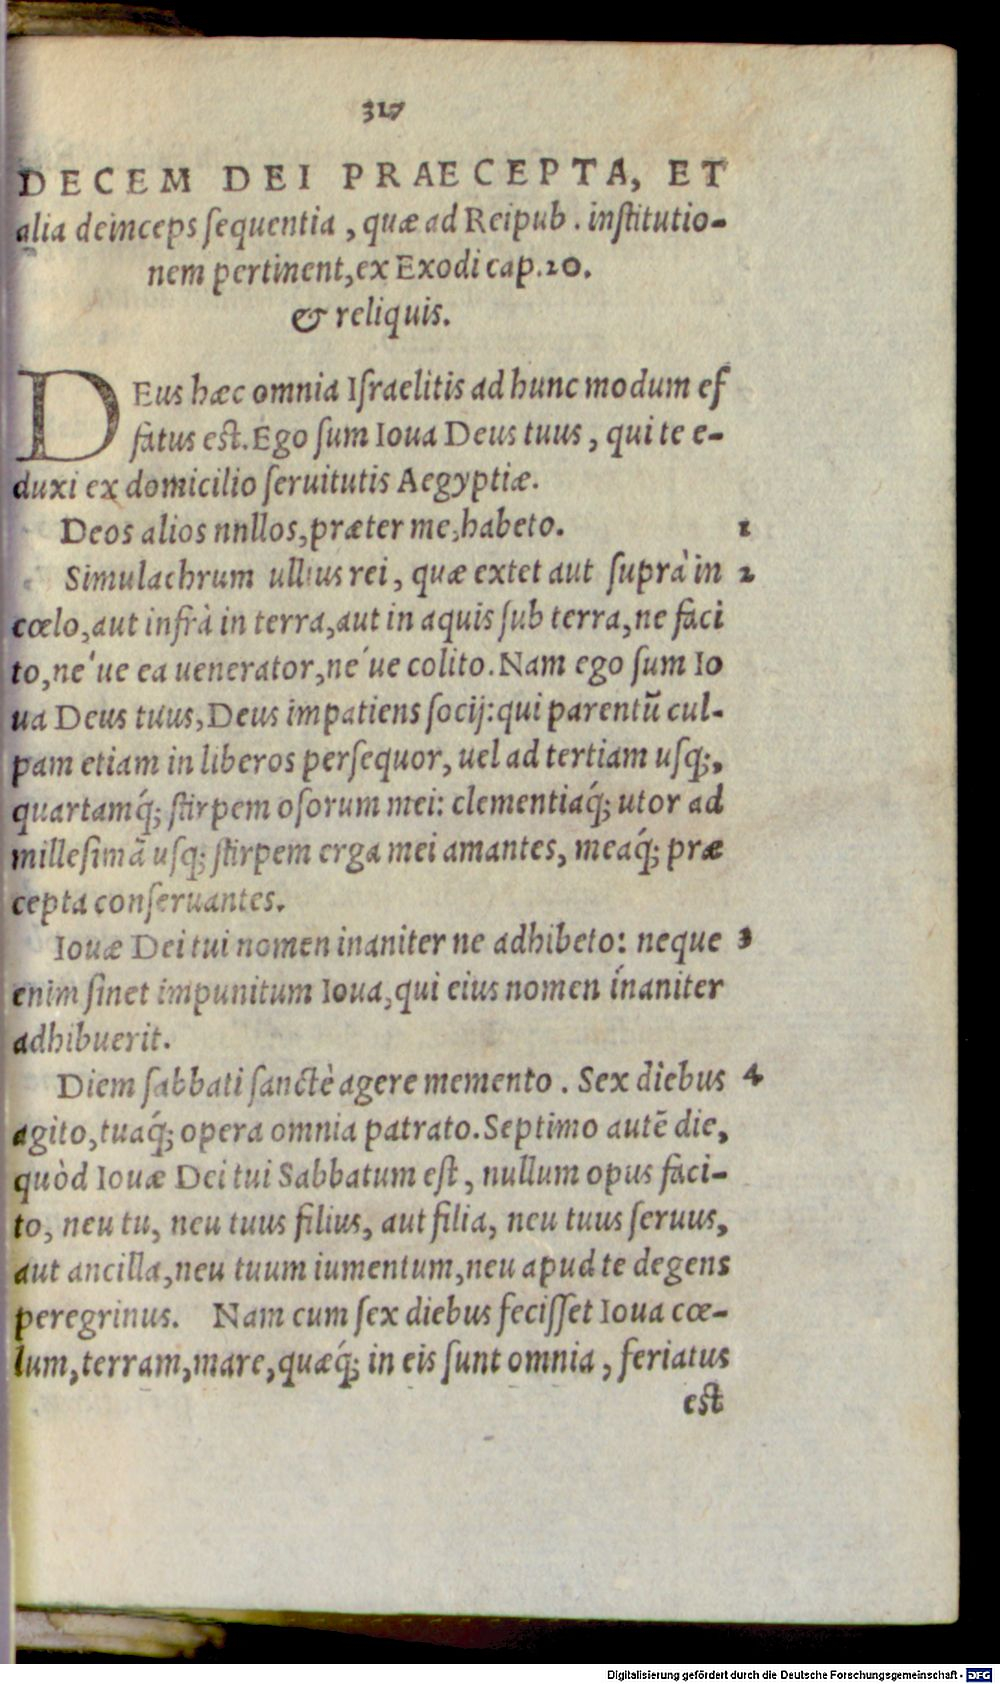 317
DECEM DEI PRAECEPTA, ET
alia deinceps ſequentia, quæ ad Reipub. inſtitutio-
nem pertinent, ex Exodi cap. 20.
& reliquis.
DEus hæc omnia Iſraelitis ad hunc modum ef
fatus eſt. Ego ſum Ioua Deus tuus, qui te e-
duxi ex domicilio ſeruitutis Aegyptiæ.
Deos alios nnllos, præter me, habeto. 1
Simulachrum ullius rei, quæ extet aut ſuprà in 2
cœlo, aut infrà in terra, aut in aquis ſub terra, ne faci
to, ne'ue ea uenerator, ne'ue colito. Nam ego ſum Io
ua Deus tuus, Deus impatiens ſocij: qui parentũ cul-
pam etiam in liberos perſequor, uel ad tertiam uſq;,
quartamq́; ſtirpem oſorum mei: clementiaq́; utor ad
milleſimã uſq; ſtirpem erga mei amantes, meaq́; præ
cepta conſeruantes.
Iouæ Dei tui nomen inaniter ne adhibeto: neque 3
enim ſinet impunitum Ioua, qui eius nomen inániter
adhibuerit.
Diem ſabbati ſanctè agere memento. Sex diebus 4
agito, tuaq́; opera omnia patrato. Septimo autẽ die,
quòd Iouæ Dei tui Sabbatum eſt, nullum opus faci-
to, neu tu, neu tuus filius, aut filia, neu tuus ſeruus,
aut ancilla, neu tuum iumentum, neu apud te degens
peregrinus. Nam cum ſex diebus feciſſet Ioua cœ-
lum, terram, mare, quæq́; in eis ſunt omnia, feriatus
eſt
Digitalisierung gefördert durch die Deutsche Forschungsgemeinschaft - DFG